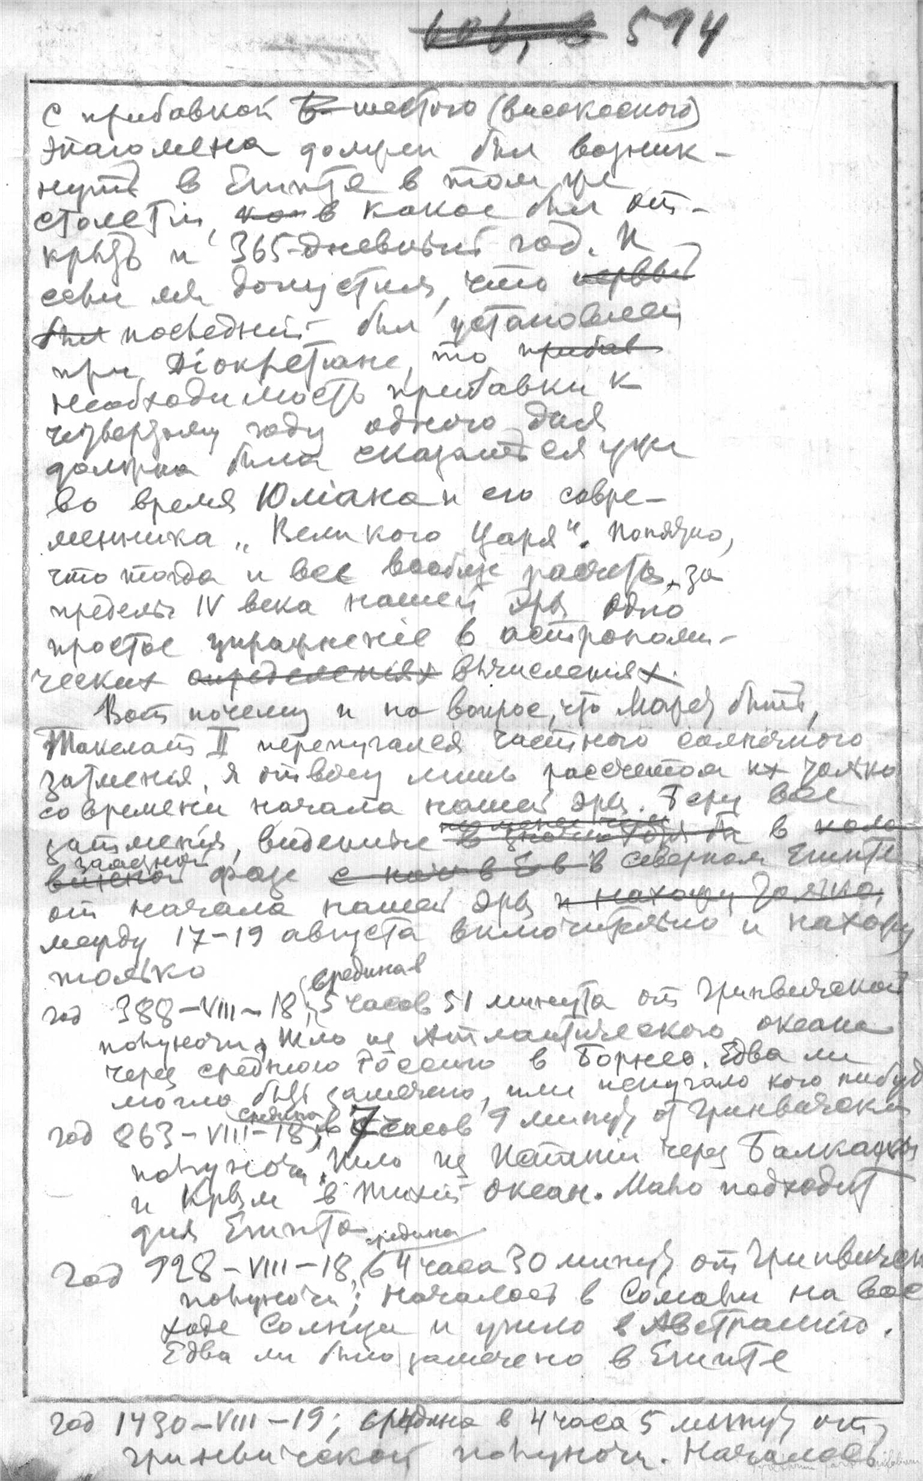 594
с прибавкой шестого (високосного)
эпагомена должен был возник-
нуть в Египте в том же
столетiи, в какое был от-
крыт и 365-дневный год. И
если мы допустим, что
последнiй был установлен
при Дiоклетiане, то
необходимость прибавки к
четвертому году одного дня
должна была сказаться уже
во время Юлiана и его совре-
менника „Великого Царя“. Понятно,
что тогда и все вообще расчеты за
пределы IV века нашей эры одно
простое упражненiе в астрономи-
ческих вычисленiях.
Вот почему и на вопрос, что может быть,
Такелат II перепугался частного солнечного
затменья, я отвечу лишь расчетом их только
со времени начала нашей эры. Беру все
затменiя, виденные в
фазе в северном Египте
от начала нашей эры
между 17–19 августа включительно и нахожу
только
год 388–VIII–18, средина 5 часов 51 минута от Гринвичской
полуночи. Шло из Атлантического океана
через среднюю Россiю в Борнео. Едва ли
могло быть замечено, или испугало кого нибудь
год 863–VIII–18, средина в 7 часов 9 минут от Гринвичской
полуночи. Шло из через Балканы
и Крым в Тихiй океан. Мало подходит
для Египта
год 928–VIII–18, средина в 4 часа 30 минут от Гринвичск
полуночи; началось в Сомали на вос
ходе Солнца и ушло в Австралiю.
Едва ли было замечено в Египте
год 1430–VIII–19; средина в 4 часа 5 минут от
гринвичской полуночи. Началось